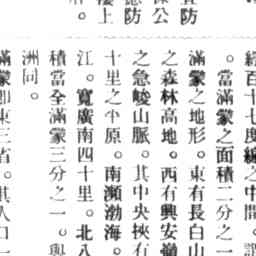 宜防
際公
德防
樓上
經百十七度線之中間。
。當滿蒙之面積二分之一
滿蒙之地形。東有長白山
之森林高地。西有興安嶺
之急峻山脈。其中央挾有
十里之平原。南瀕渤海。
江。寬廣南四十里。北八
積當全滿蒙三分之一。與
洲同。
滿蒙卽東三省。其人口一